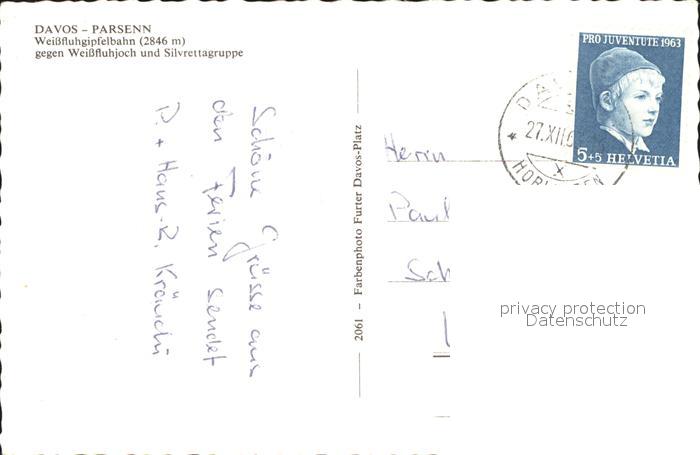 DAVOS – PARSENN
Weißfluhgipfelbahn (2846 m)
gegen Weißfluhjoch und Silvrettagruppe
Schöne Grüsse aus
den Ferien sendet
P. + Hans-R.
2061 – Farbenphoto Furter Davos-Platz
PRO JUVENTUTE 1963
5+5 HELVETIA
DAV
27.XII.6
HOR
Herrn
Paul
Sch
privacy protection
Datenschutz